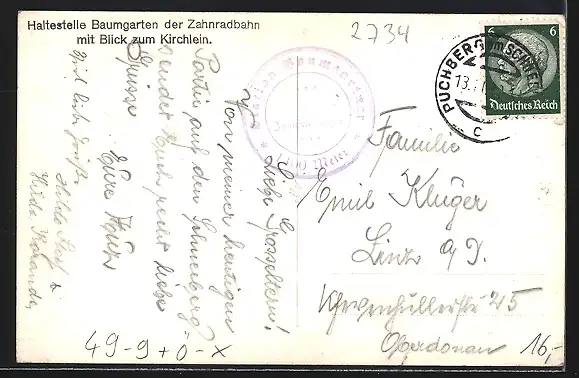 Haltestelle Baumgarten der Zahnradbahn
mit Blick zum Kirchlein.
2734
PUCHBERG am SCHNEEBERG
13.
c
6 6
Deutsches Reich
Station Baumgartner
Liebe Grosseltern!
Von meiner heutigen
Partie auf den Schneeberg
sendet Euch recht liebe
Grüsse
Eure
Viel liebe Grüße
Hilda
Familie
Emil Kluger
Linz a/D.
Khevenhüllerstr 25
Oberdonau
16,-
49-9+0-X